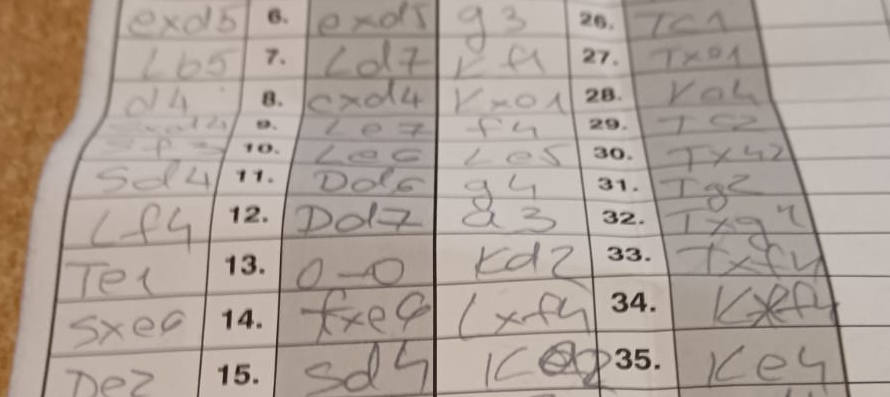 exd5 6. exd5 g3 26. Tc1
Lb5 7. Ld7 Kf1 27. Txe1
d4 8. cxd4 Kxe1 28. Ke4
9. Le7 f4 29. Tc2
10. Le6 Le5 30. Txh2
Sd4 11. Dd6 g4 31. Tg2
Lf4 12. Dd7 a3 32. Txg4
Te1 13. 0-0 Kd2 33. Txf4
Sxe6 14. fxe6 Lxf4 34. Kxf4
De2 15. Sd4 35. Ke4